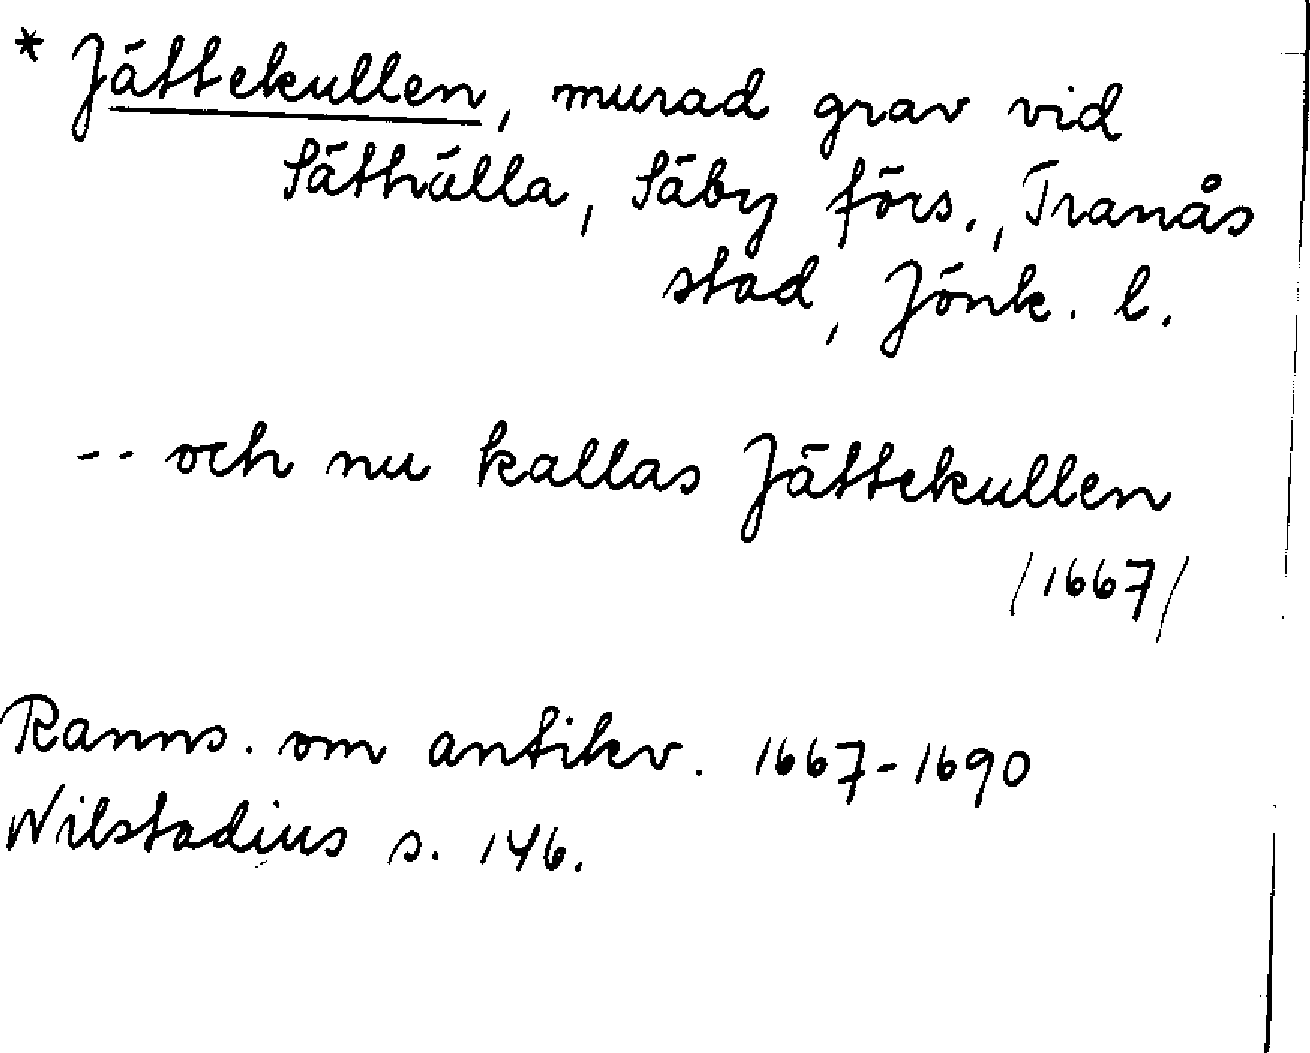 * Jättekullen, murad grav vid
Säthälla, Säby förs., Tranås
stad, Jönk. l.
-- och nu kallas Jättekullen
/1667/
Ranns. om antikv. 1667-1690
Wilstadius s. 146.